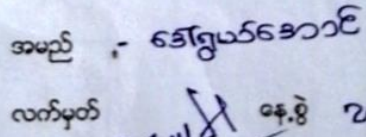 အမည် :- ဒေါ်ရွယ်အောင်
လက်မှတ် နေ့စွဲ